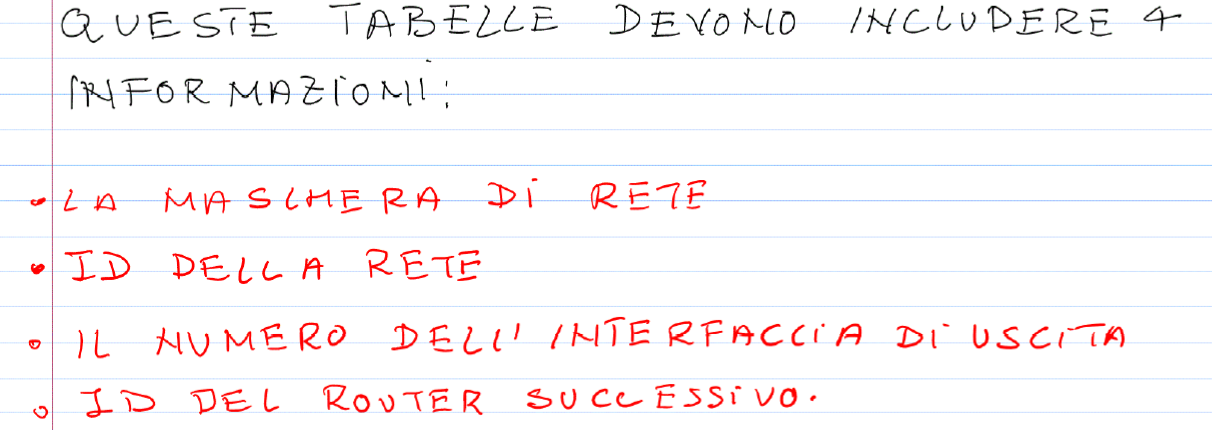 QUESTE TABELLE DEVONO INCLUDERE 4
INFORMAZIONI:
• LA MASCHERA DI RETE
• ID DELLA RETE
• IL NUMERO DELL'INTERFACCIA DI USCITA
• ID DEL ROUTER SUCCESSIVO.